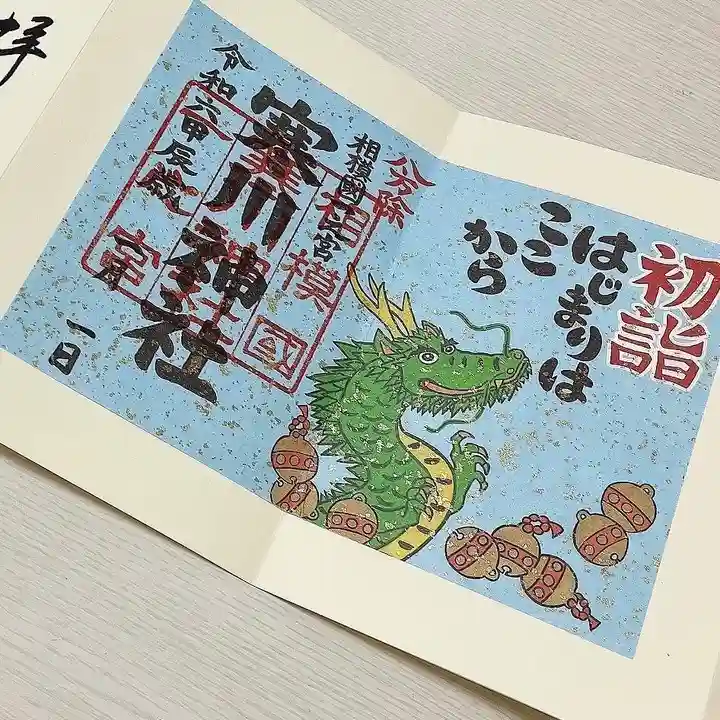 拝
初詣
はじまりは
ここ
から
八方除
相模國一之宮
寒川神社
相模國
令和六甲辰歳
一日